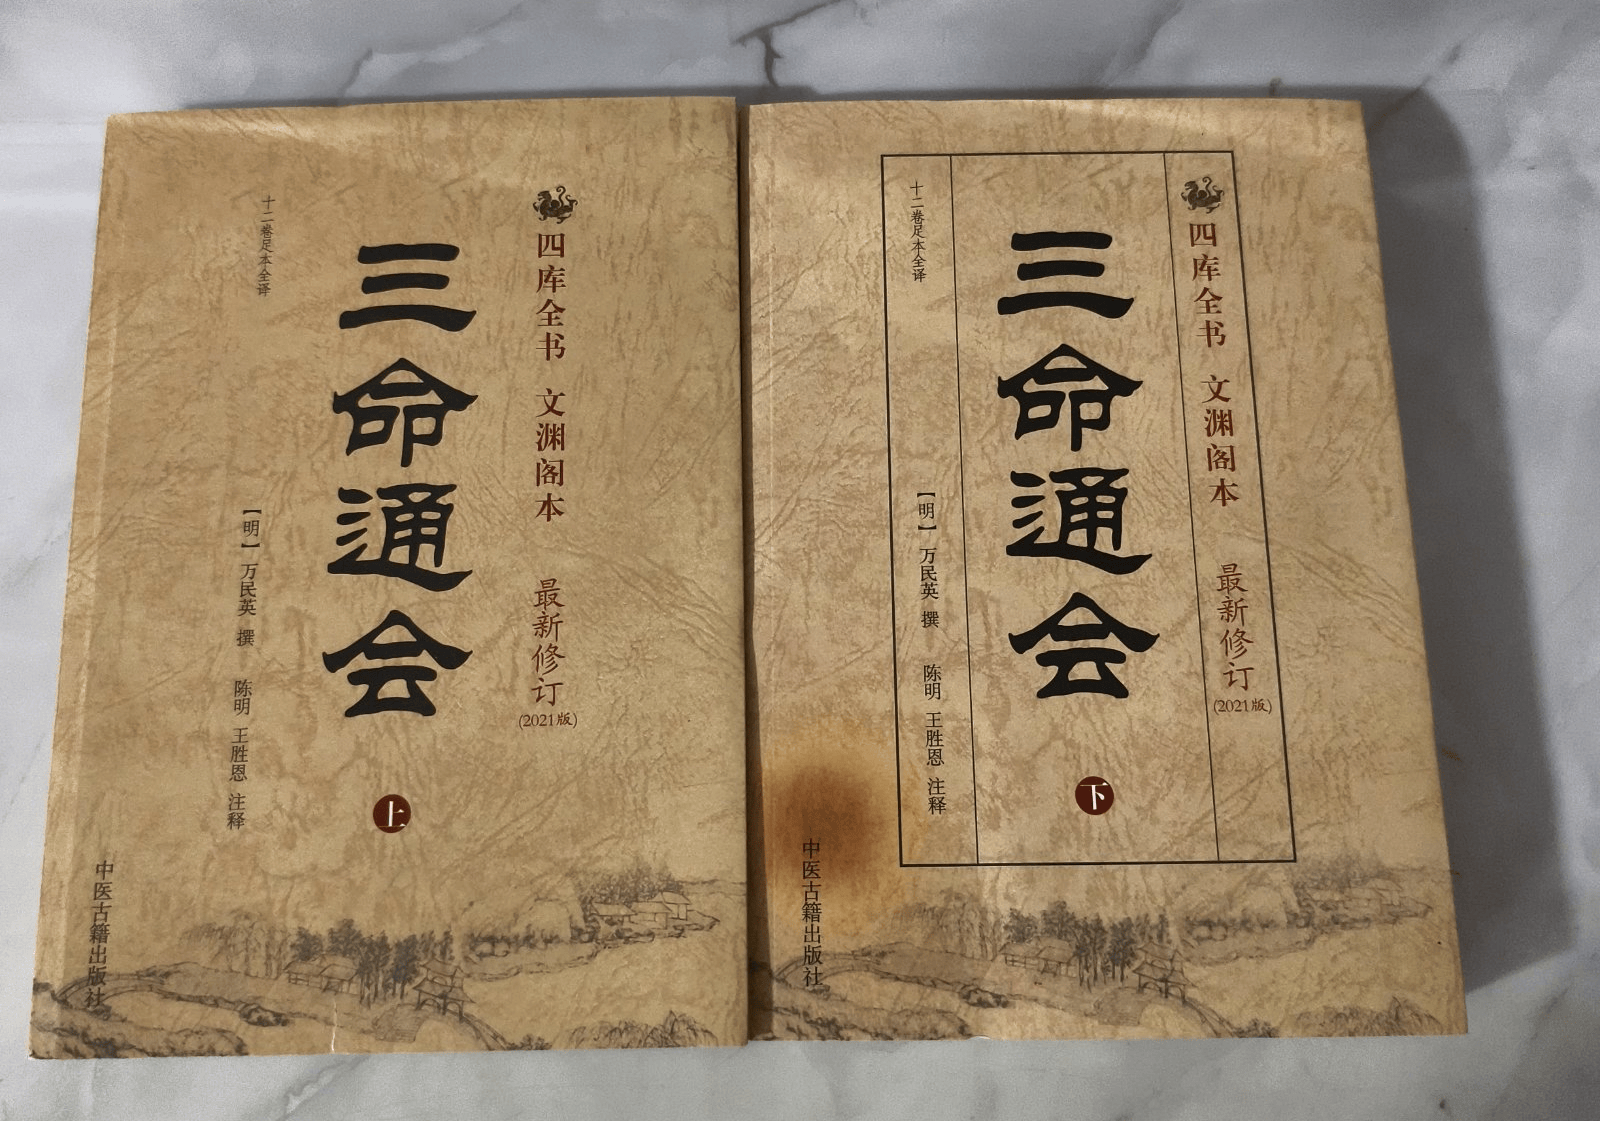 四库全书 文渊阁本 最新修订
(2021版)
三命通会
上
十二卷足本全译
【明】 万民英 撰 陈明 王胜恩 注释
中医古籍出版社
四库全书 文渊阁本 最新修订
(2021版)
三命通会
下
十二卷足本全译
【明】 万民英 撰 陈明 王胜恩 注释
中医古籍出版社